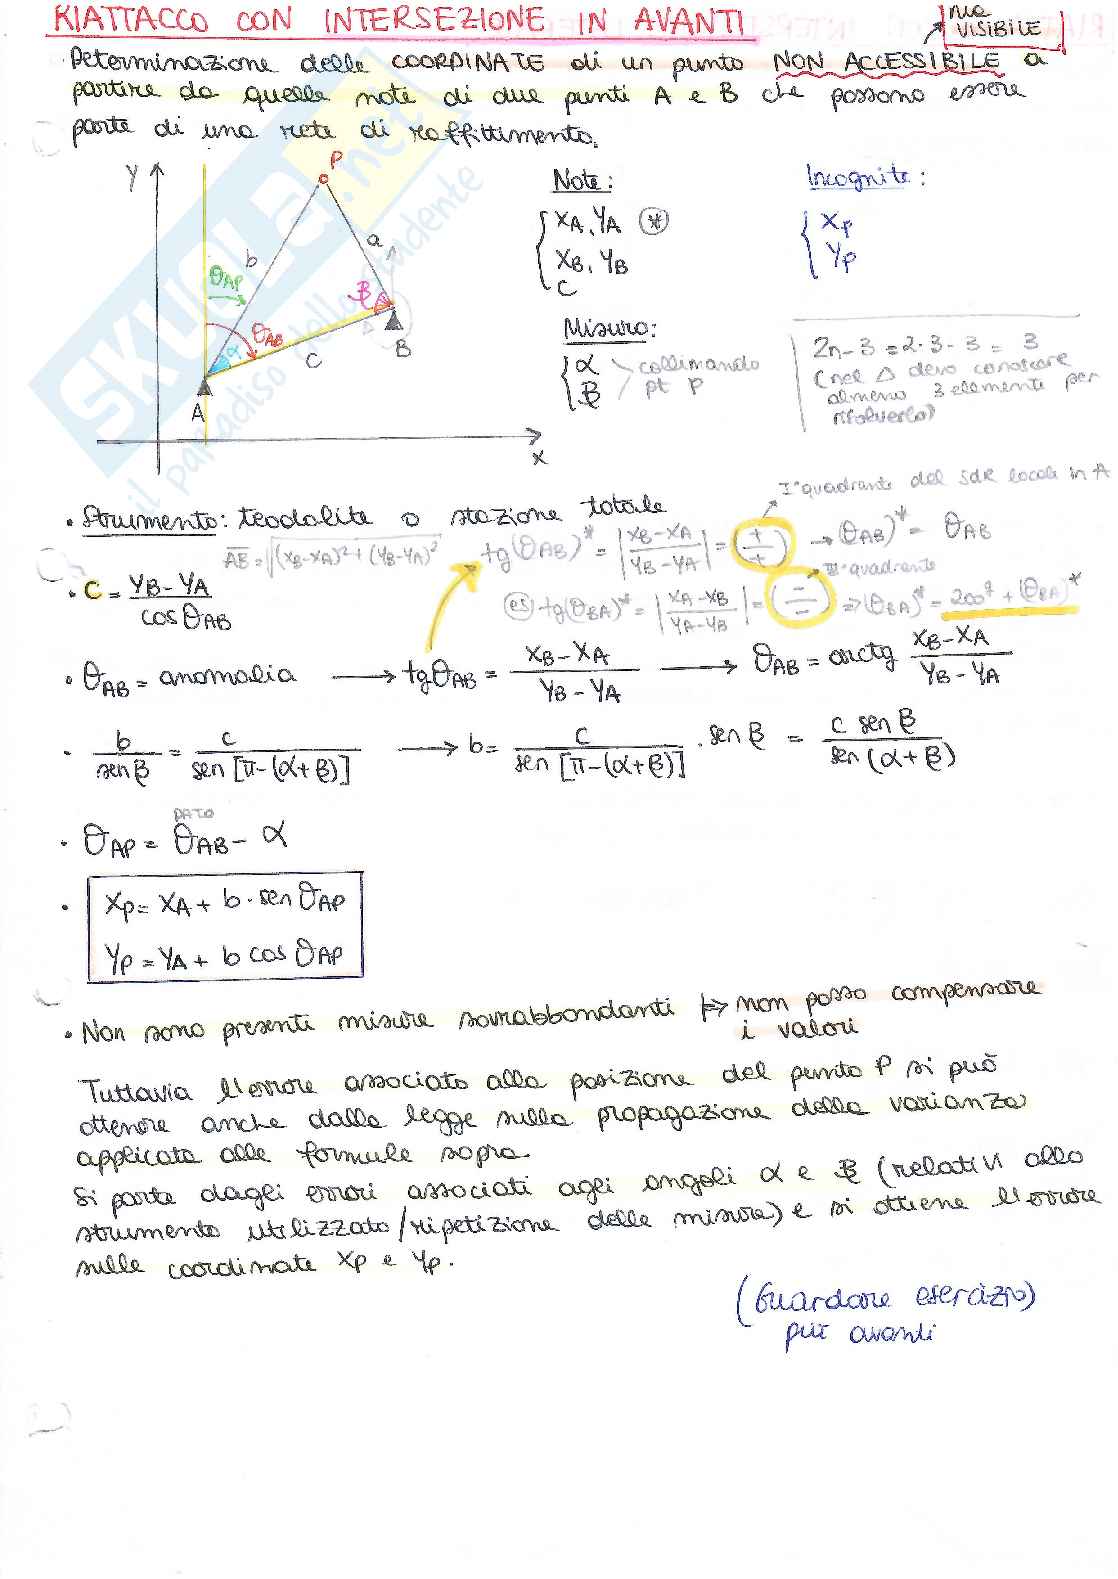 RIATTACCO CON INTERSEZIONE IN AVANTI
ma
VISIBILE
· Determinazione delle COORDINATE di un punto NON ACCESSIBILE a
partire da quelle note di due punti A e B che possono essere
parte di una rete di raffittimento.
Y
P
b
a
θAP
θAB
α
β
c
A
B
x
Note:
{ XA, YA (*)
XB, YB
C
Incognite:
{ Xp
Yp
Misuro:
{ α
β
collimando
pt P
2n-3 = 2·3-3 = 3
(nel Δ devo conoscere
almeno 3 elementi per
risolverlo)
I° quadrante del SdR locale in A
· Strumento: teodolite o stazione totale
AB = √(XB-XA)²+(YB-YA)²
tg(θAB)* = |XB-XA / YB-YA| = (+/+) → θAB)* = θAB
III° quadrante
(es) tg(θBA)* = |XA-XB / YA-YB| = (-/-) ⇒ (θBA)* = 200g + (θBA)*
· C = YB-YA / cosθAB
· θAB = anomalia → tgθAB = XB-XA / YB-YA → θAB = arctg XB-XA / YB-YA
· b / senβ = c / sen[π-(α+β)] → b = c / sen[π-(α+β)] · senβ = c senβ / sen(α+β)
DATO
· θAP = θAB - α
· XP = XA + b·senθAP
YP = YA + b cosθAP
· Non sono presenti misure sovrabbondanti ⇒ non posso compensare
i valori
Tuttavia l'errore associato alla posizione del punto P si può
ottenere anche dalla legge sulla propagazione della varianza
applicata alle formule sopra.
Si parte dagli errori associati agli angoli α e β (relativi allo
strumento utilizzato/ripetizione delle misure) e si ottiene l'errore
sulle coordinate XP e YP.
(Guardare esercizio)
più avanti
SKUOLA.net
il paradiso dello studente